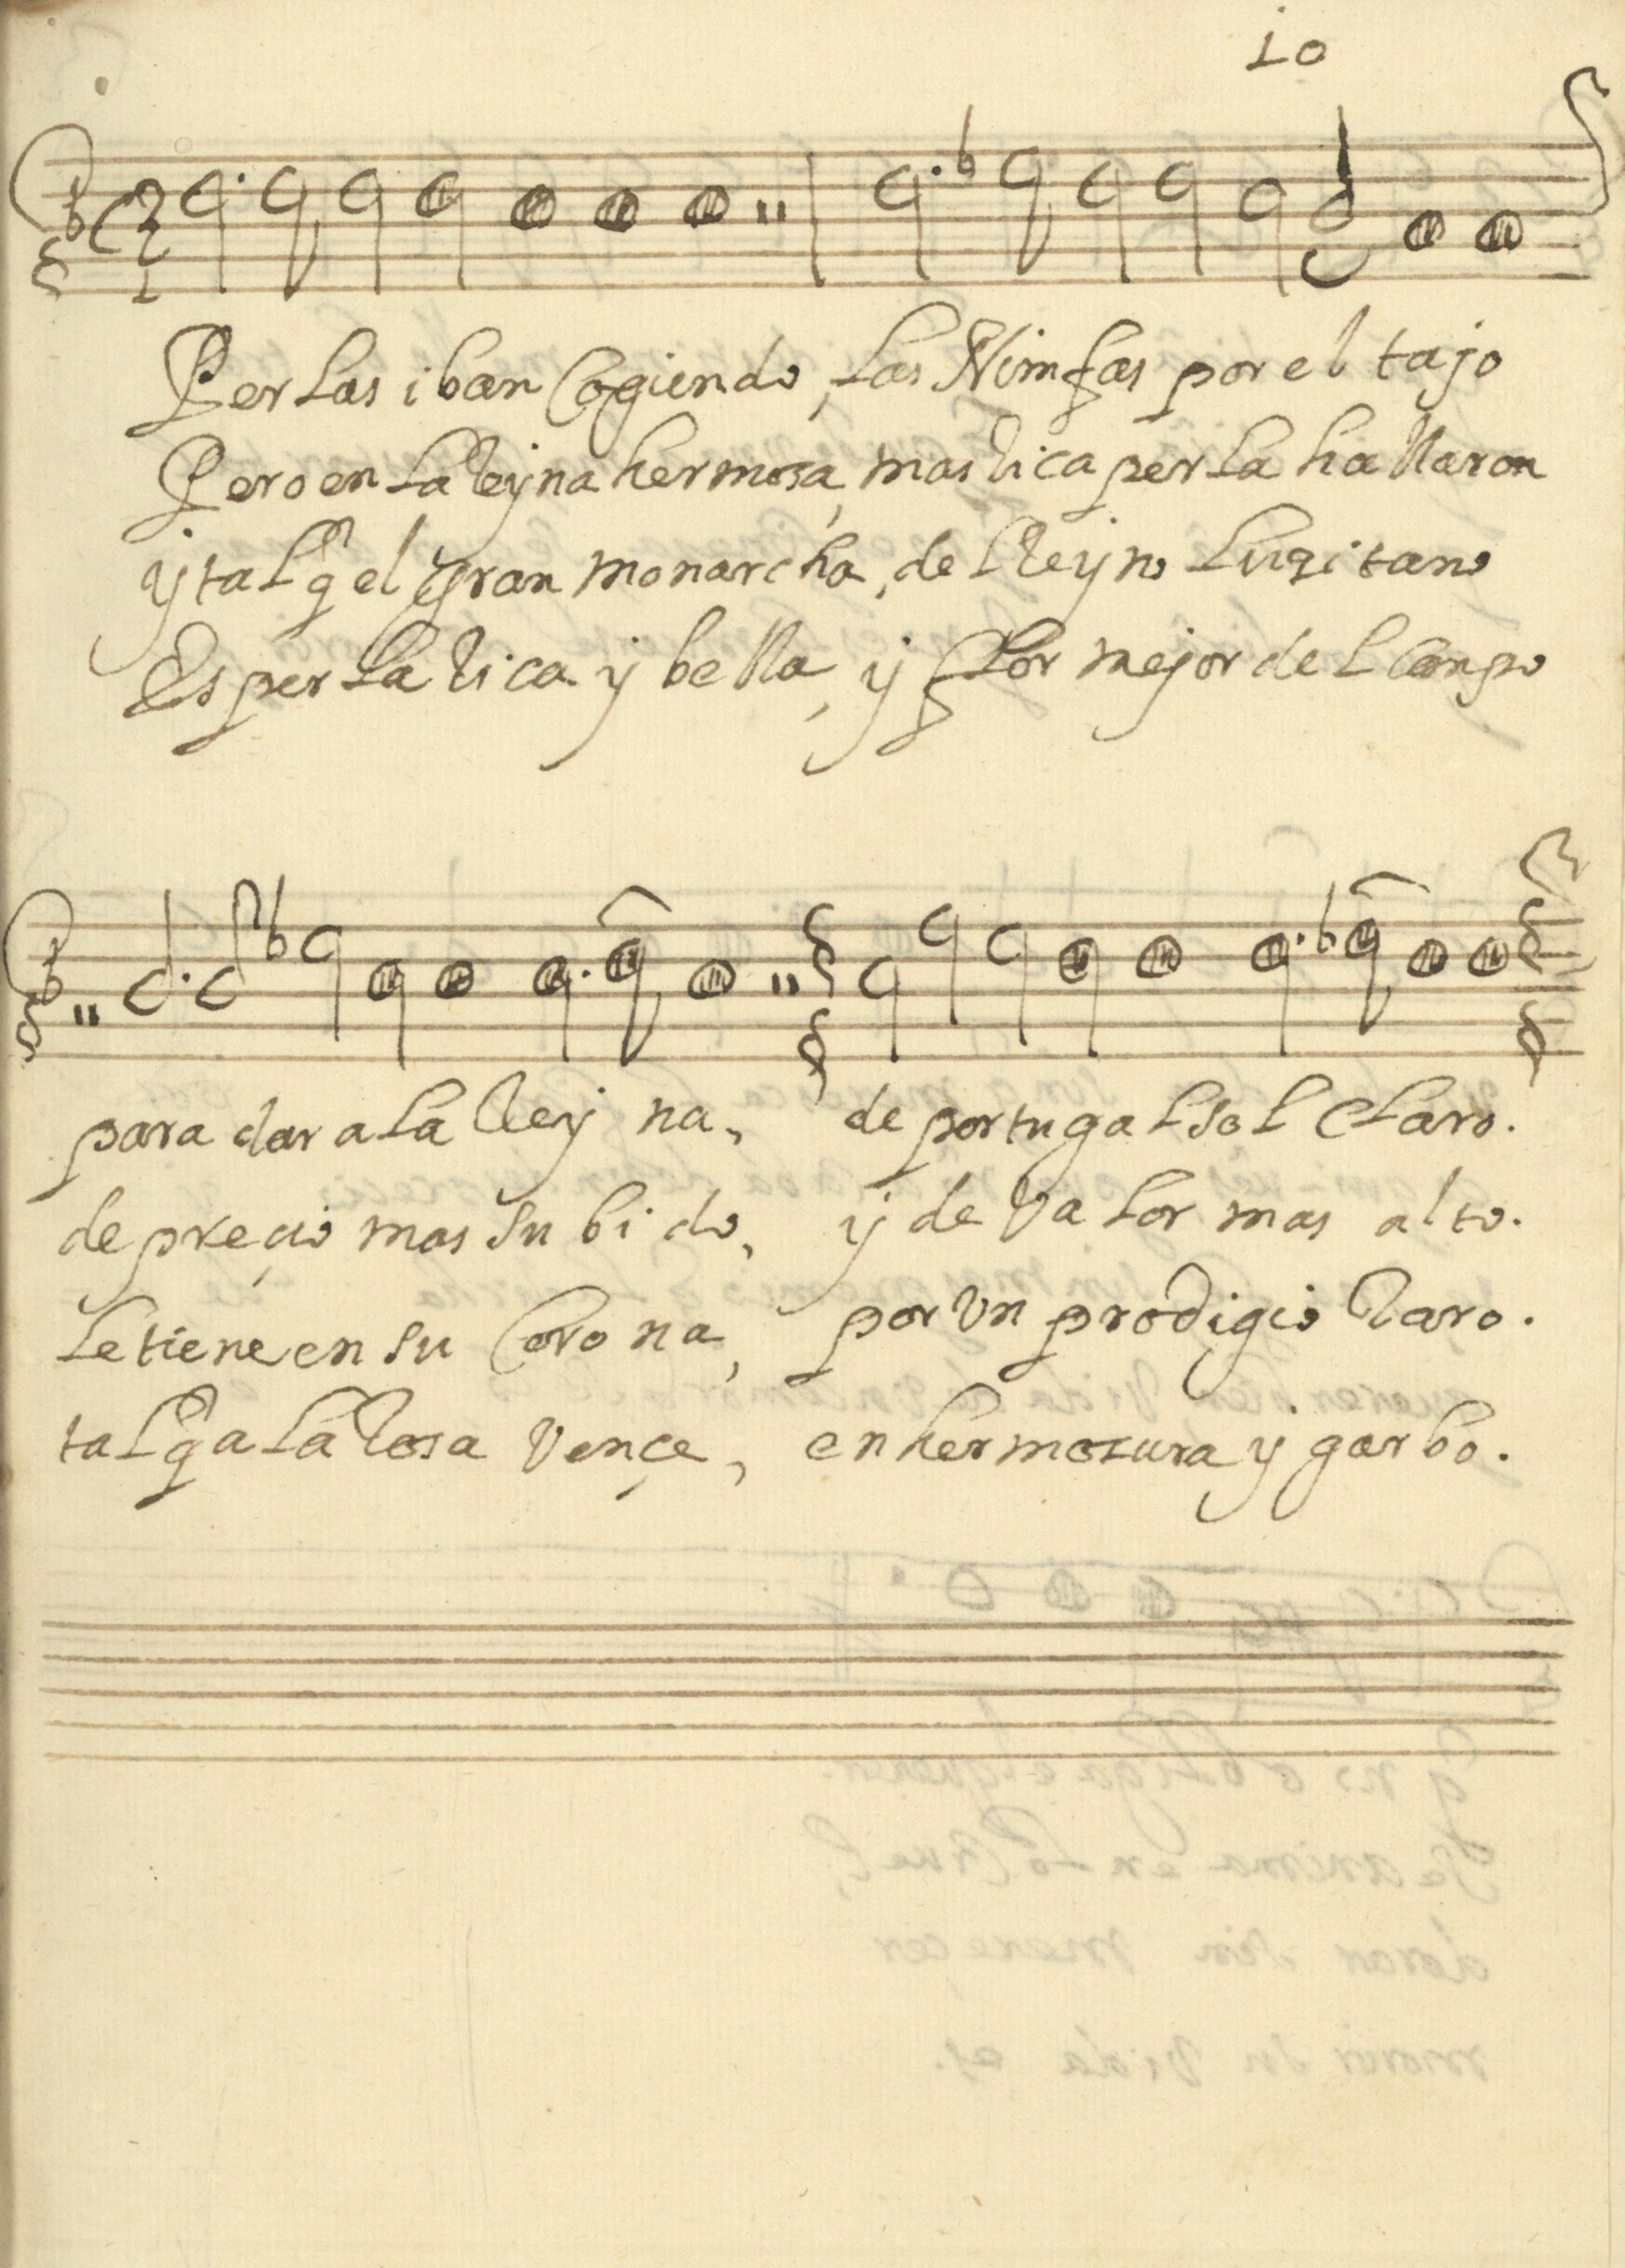 10
Perlas iban Cogiendo, las Nimfas por el tajo
Pero en la Reyna hermosa, mas Rica perla hallaron
y tal q el gran monarcha, del Reyno Luzitano
Es perla Rica y bella, y flor mejor del Campo
para dar a la Reyna, de portugal sol claro.
de preçio mas subido, y de Valor mas alto.
Le tiene en su Corona, por Vn prodigio Raro.
tal q a la Rosa Vençe, en hermozura y garbo.